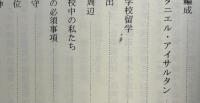 編成
タニエル・アイサルタン
学校留学
出
周辺
校中の私たち
の必須事項
守
位